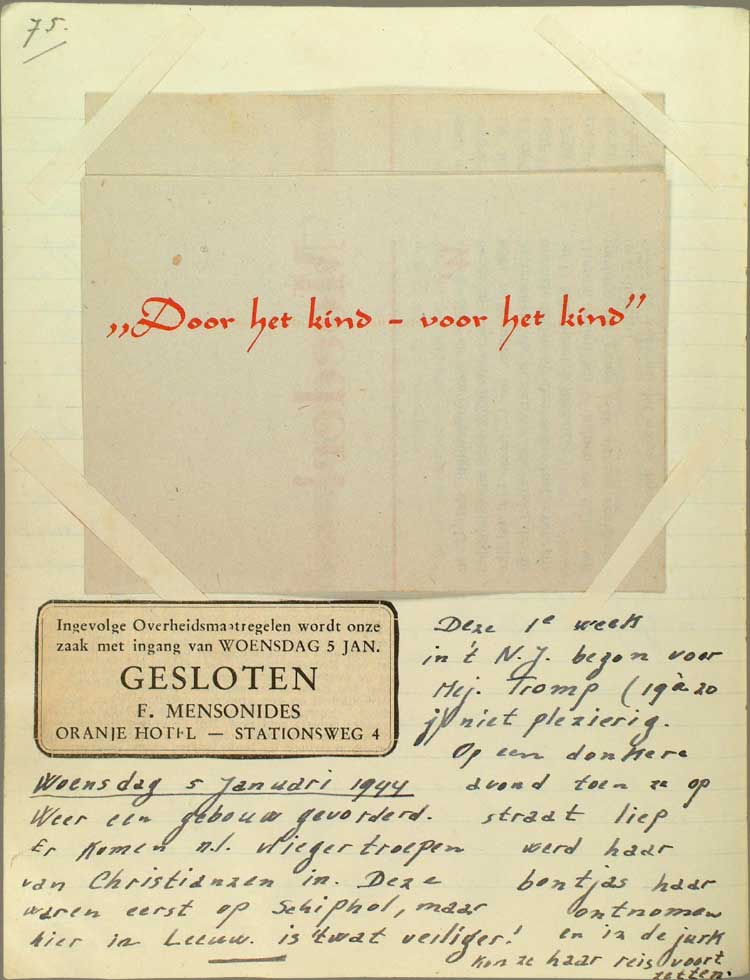 75.
„Door het kind - voor het kind”
Ingevolge Overheidsmaatregelen wordt onze
zaak met ingang van WOENSDAG 5 JAN.
GESLOTEN
F. MENSONIDES
ORANJE HOTEL — STATIONSWEG 4
Woensdag 5 Januari 1944
Weer een gebouw gevorderd.
Er komen n.l. vliegertroepen
van Christianzen in. Deze
waren eerst op Schiphol, maar
hier in Leeuw. is 't wat veiliger!
Deze 1e week
in 't N.J. begon voor
Mej. Tromp (19 à 20
j) niet plezierig.
Op een donkere
avond toen ze op
straat liep
werd haar
bontjas haar
ontnomen
en in de jurk
kon ze haar reis voort
zetten.